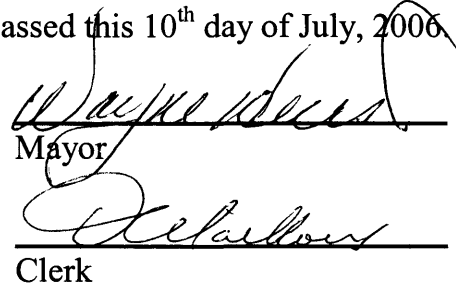 assed this 10th day of July, 2006.
Wayne
Mayor
Clerk